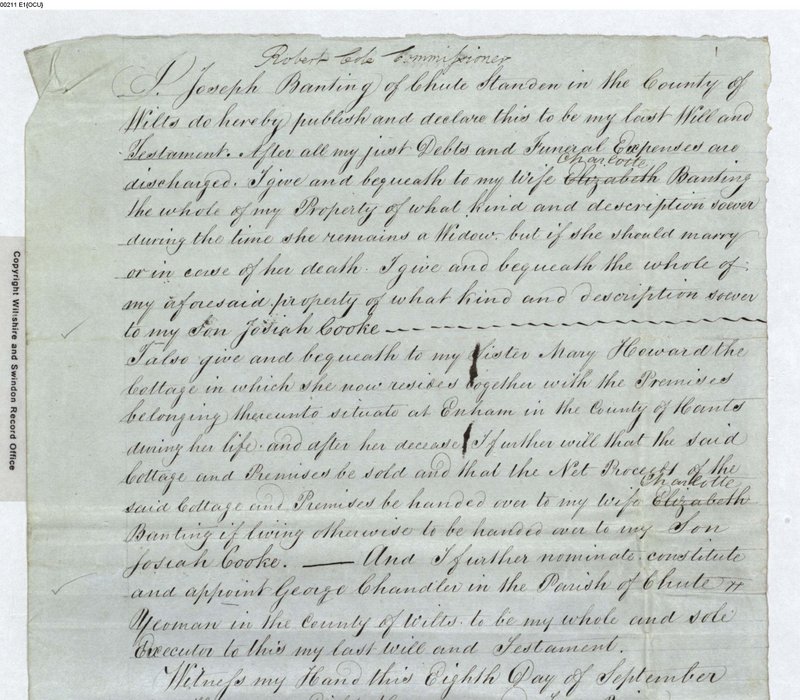 00211 E1{OCU}
Robert Cole Commissioner
I, Joseph Banting of Chute Standen in the County of
Wilts do hereby publish and declare this to be my last Will and
Testament. After all my just Debts and Funeral Expenses are
Charlotte
discharged. I give and bequeath to my Wife Elizabeth Banting
the whole of my Property of what kind and description soever
during the time she remains a Widow. but if she should marry
or in case of her death. I give and bequeath the whole of
my aforesaid property of what kind and description soever
to my Son Josiah Cooke
I also give and bequeath to my Sister Mary Howard the
Cottage in which she now resides together with the Premises
belonging thereunto situate at Enham in the County of Hants
during her life. and after her decease I further will that the said
Cottage and Premises be sold and that the Net Proceeds of the
Charlotte
said Cottage and Premises be handed over to my Wife Elizabeth
Banting if living otherwise to be handed over to my Son
Josiah Cooke. — And I further nominate constitute
and appoint George Chandler in the Parish of Chute
Yeoman in the County of Wilts. to be my whole and sole
Executor to this my last will and Testament.
Witness my Hand this Eighth Day of September
Copyright Wiltshire and Swindon Record Office